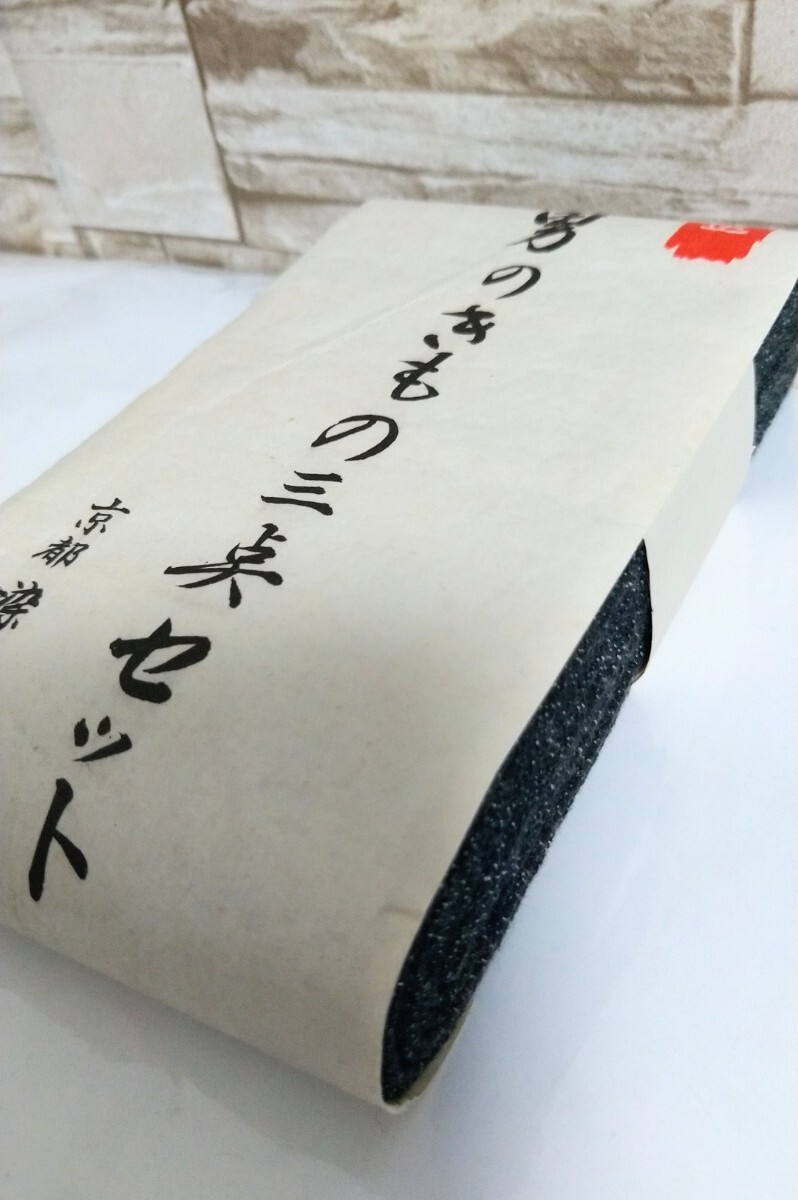 男のきもの三点セット
京都 染